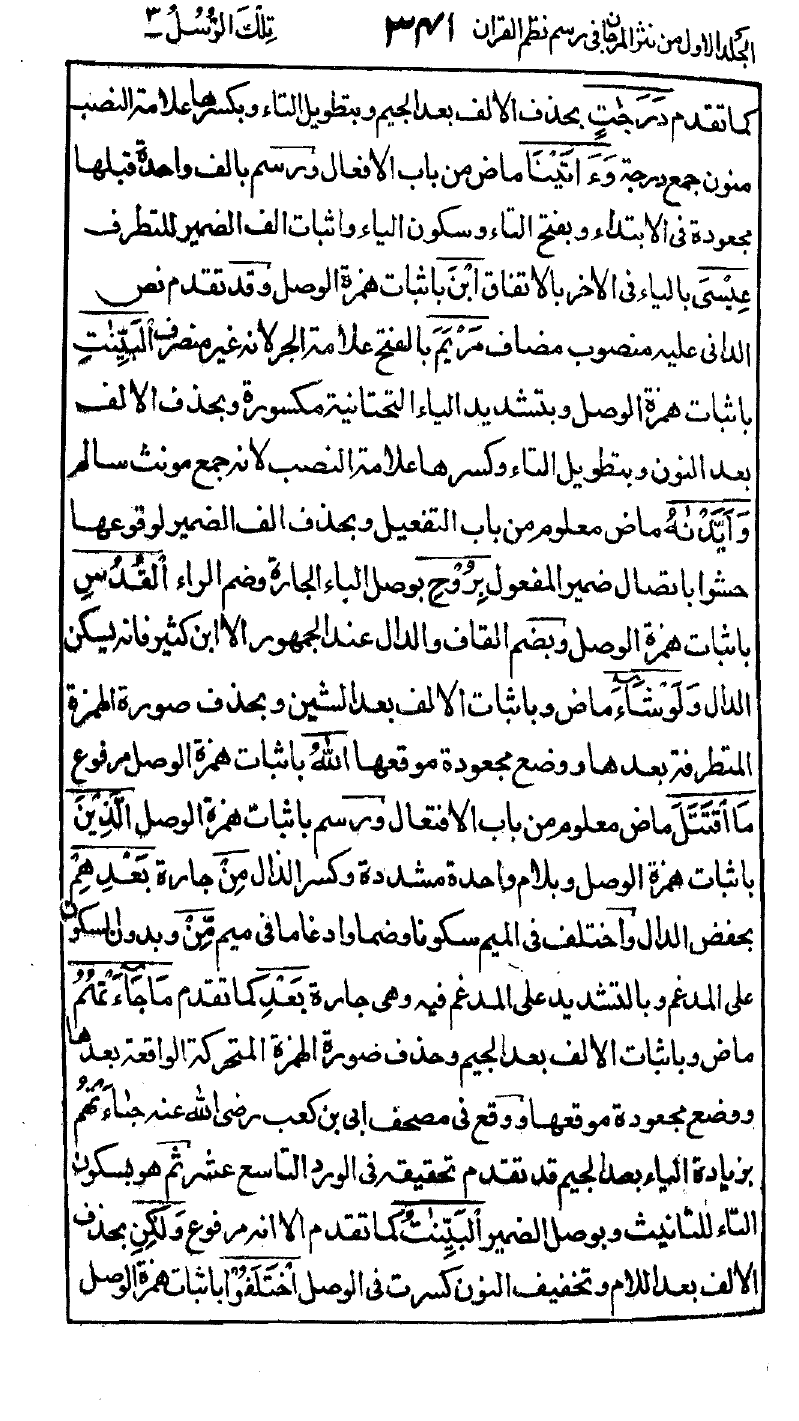 الجلد الاول من نثر المرجان فى رسم نظم القران ٣٤١ تِلْكَ الرُّسُلُ ٣
كما تقدم دَرَجٰتٍ بحذف الالف بعد الجيم وبتطويل التاء وبكسرها علامة النصب
منون جمع درجة وَءَاتَيْنَا ماض من باب الافعال ورسم بالف واحدة قبلها
مجعودة فى الابتداء وبفتح التاء وسكون الياء واثبات الف الضمير للتطرف
عِيْسَى بالياء فى الاخر بالاتفاق ابْنَ باثبات همزة الوصل وقد تقدم نص
الدانى عليه منصوب مضاف مَرْيَمَ بالفتح علامة الجر لانه غير منصرف الْبَيِّنٰتِ
باثبات همزة الوصل وبتشديد الياء التحتانية مكسورة وبحذف الالف
بعد النون وبتطويل التاء وكسرها علامة النصب لانه جمع مونث سالم
وَاَيَّدْنٰهُ ماض معلوم من باب التفعيل وبحذف الف الضمير لوقوعها
حشوا باتصال ضمير المفعول بِرُوْحِ بوصل الباء الجارة وضم الراء الْقُدُسِ
باثبات همزة الوصل وبضم القاف والدال عند الجمهور الا ابن كثير فانه يسكن
الدال وَلَوْ شَآءَ ماض وباثبات الالف بعد الشين وبحذف صورة الهمزة
المتطرفة بعدها ووضع مجعودة موقعها اللهُ باثبات همزة الوصل مرفوع
مَا اقْتَتَلَ ماض معلوم من باب الافتعال ورسم باثبات همزة الوصل الَّذِيْنَ
باثبات همزة الوصل وبلام واحدة مشددة وكسر الذال مِنْ جارة بَعْدِهِمْ
بخفض الدال واختلف فى الميم سكونا وضما وادغاما فى ميم مِّنْ وبدون السكون
على المدغم وبالتشديد على المدغم فيه وهى جارة بَعْدِ كما تقدم مَا جَآءَتْهُمُ
ماض وباثبات الالف بعد الجيم وحذف صورة الهمزة المتحركة الواقعة بعدها
ووضع مجعودة موقعها ووقع فى مصحف ابى بن كعب رضى الله عنه جياءتهم
بزيادة الياء بعد الجيم قد تقدم تحقيقه فى الورد التاسع عشر ثم هو بسكون
التاء للتانيث وبوصل الضمير الْبَيِّنٰتُ كما تقدم الا انه مرفوع وَلٰكِنِ بحذف
الالف بعد اللام وتخفيف النون كسرت فى الوصل اخْتَلَفُوْا باثبات همزة الوصل